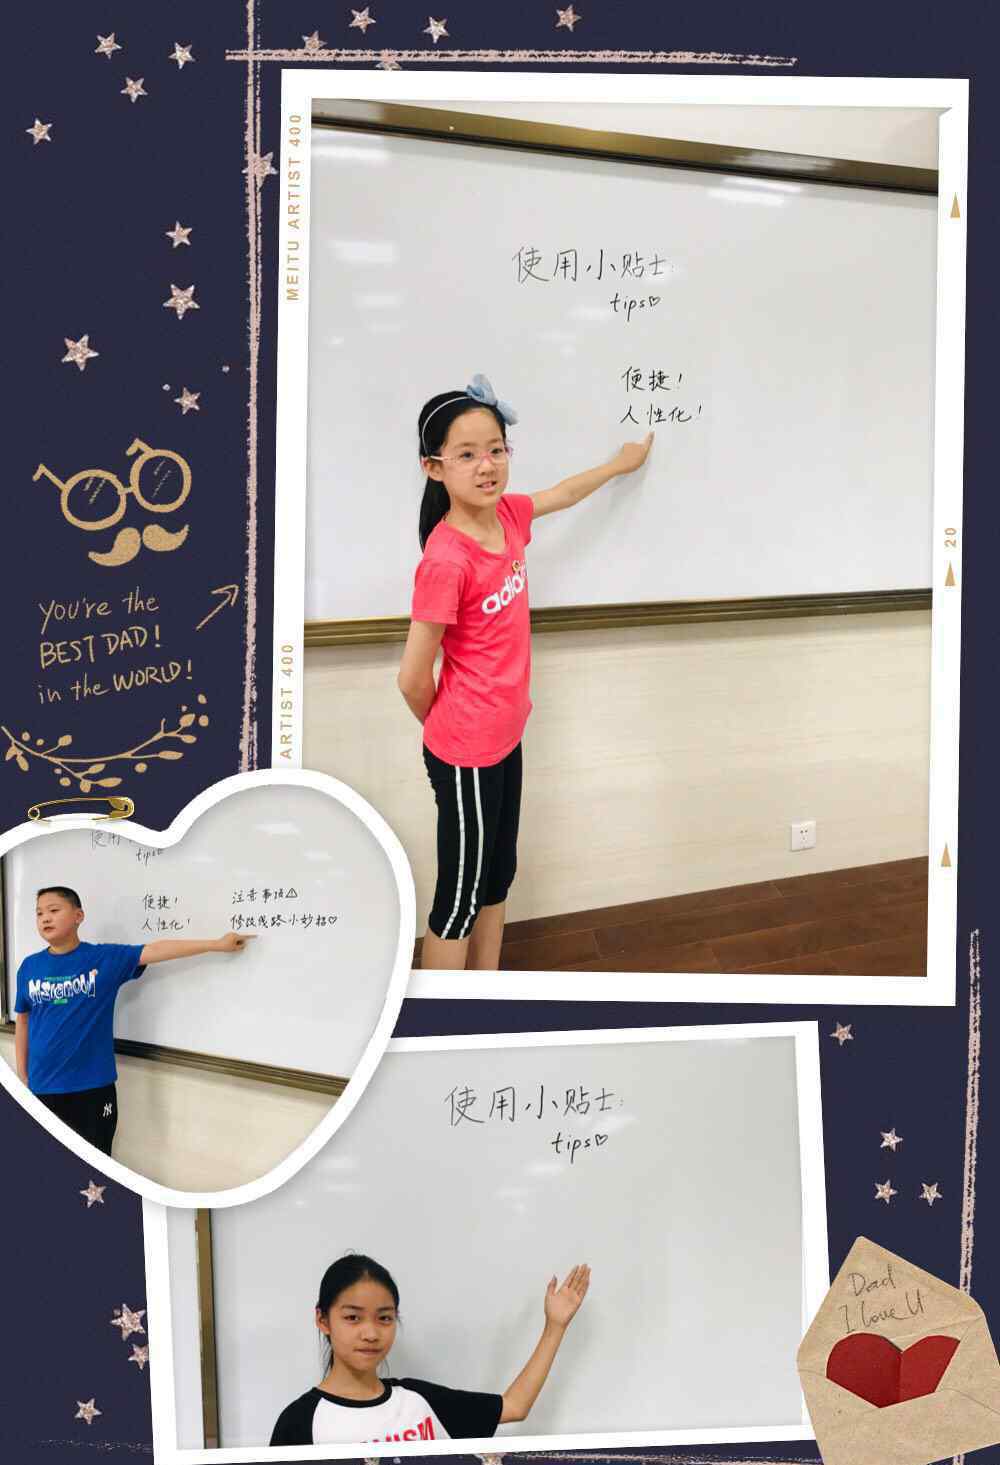 MEITU ARTIST 400
使用小贴士:
tips♡
便捷!
人性化!
adida
20
ARTIST 400
You're the
BEST DAD!
in the WORLD!
使用
tips
便捷!
人性化!
注意事项⚠
修改线路小妙招♡
NY
使用小贴士:
tips♡
Dad
I love U